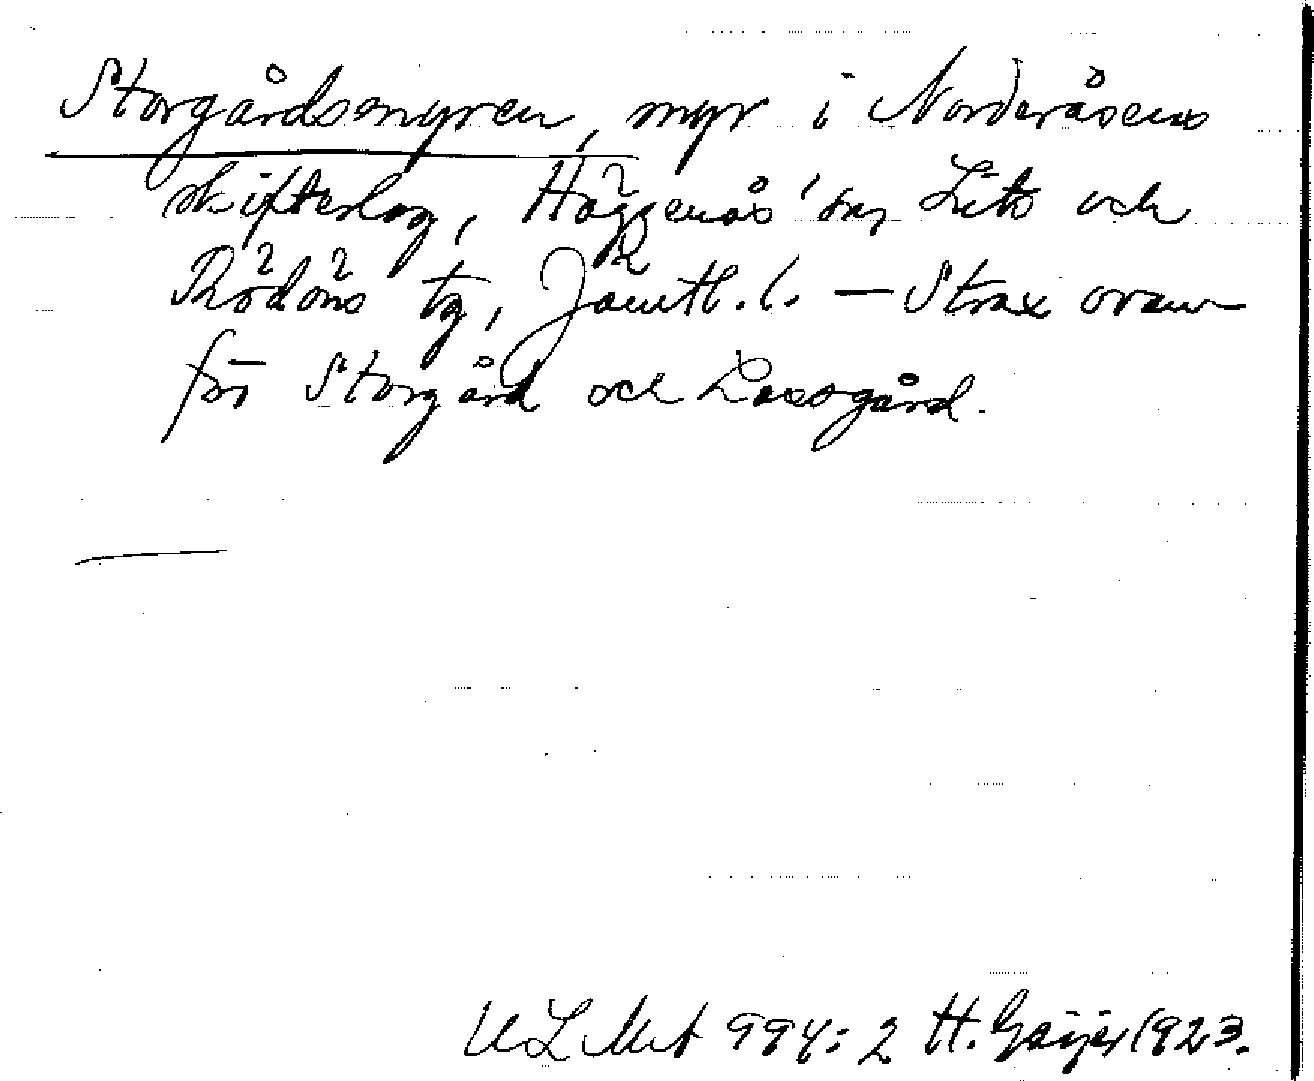 Storgårdsmyren, myr i Norderåsens
skifteslag, Häggenås' sn, Lits och
Rödöns tg, Jämtl. l. — Strax ovan-
för Storgård och Lassgård.
ULMA 994: 2 H. Geijer 1923.